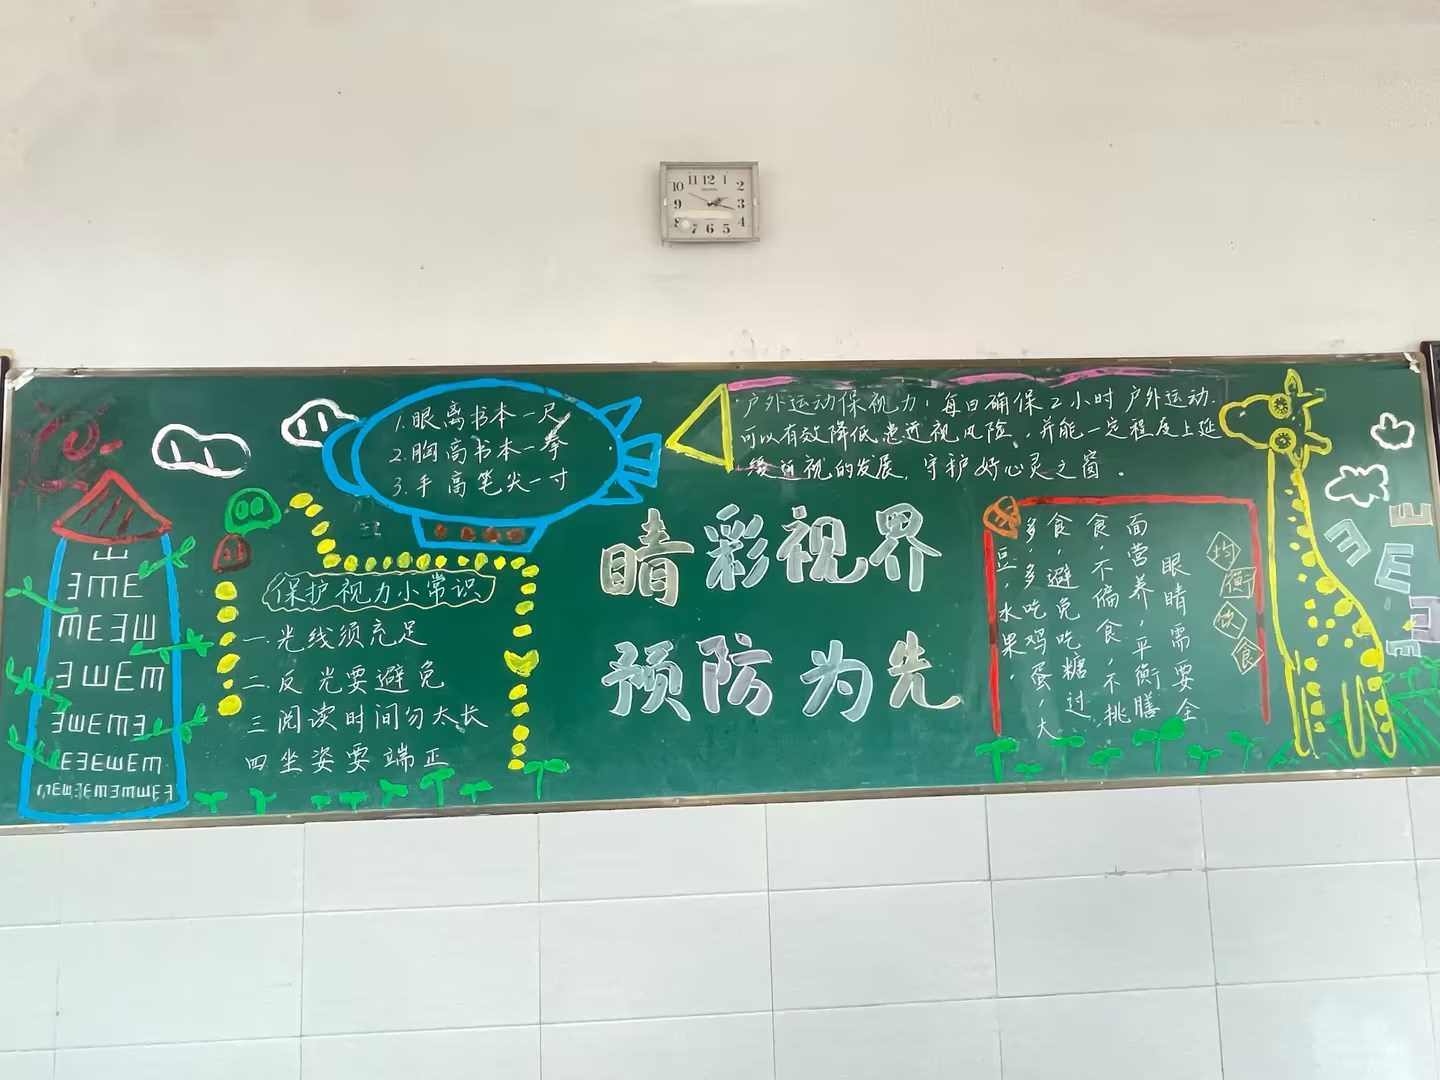 10 11 12 1 2
9 3
8 7 6 5 4
1.眼离书本一尺
2.胸离书本一拳
3.手离笔尖一寸
户外运动保视力:每日确保2小时户外运动.
可以有效降低患近视风险,并能一定程度上延
缓近视的发展,守护好心灵之窗。
保护视力小常识
一.光线须充足
二.反光要避免
三阅读时间勿太长
四坐姿要端正
睛彩视界
预防为先
均衡饮食
眼睛需要全
面营养,平衡膳
食,不偏食,不挑
食,避免吃糖过
多,多吃鸡蛋,大
豆,水果.
山
ƎmE
mEƎШ
ƎШEm
ƎШEmƎ
EƎEШEm
E
m
E
E